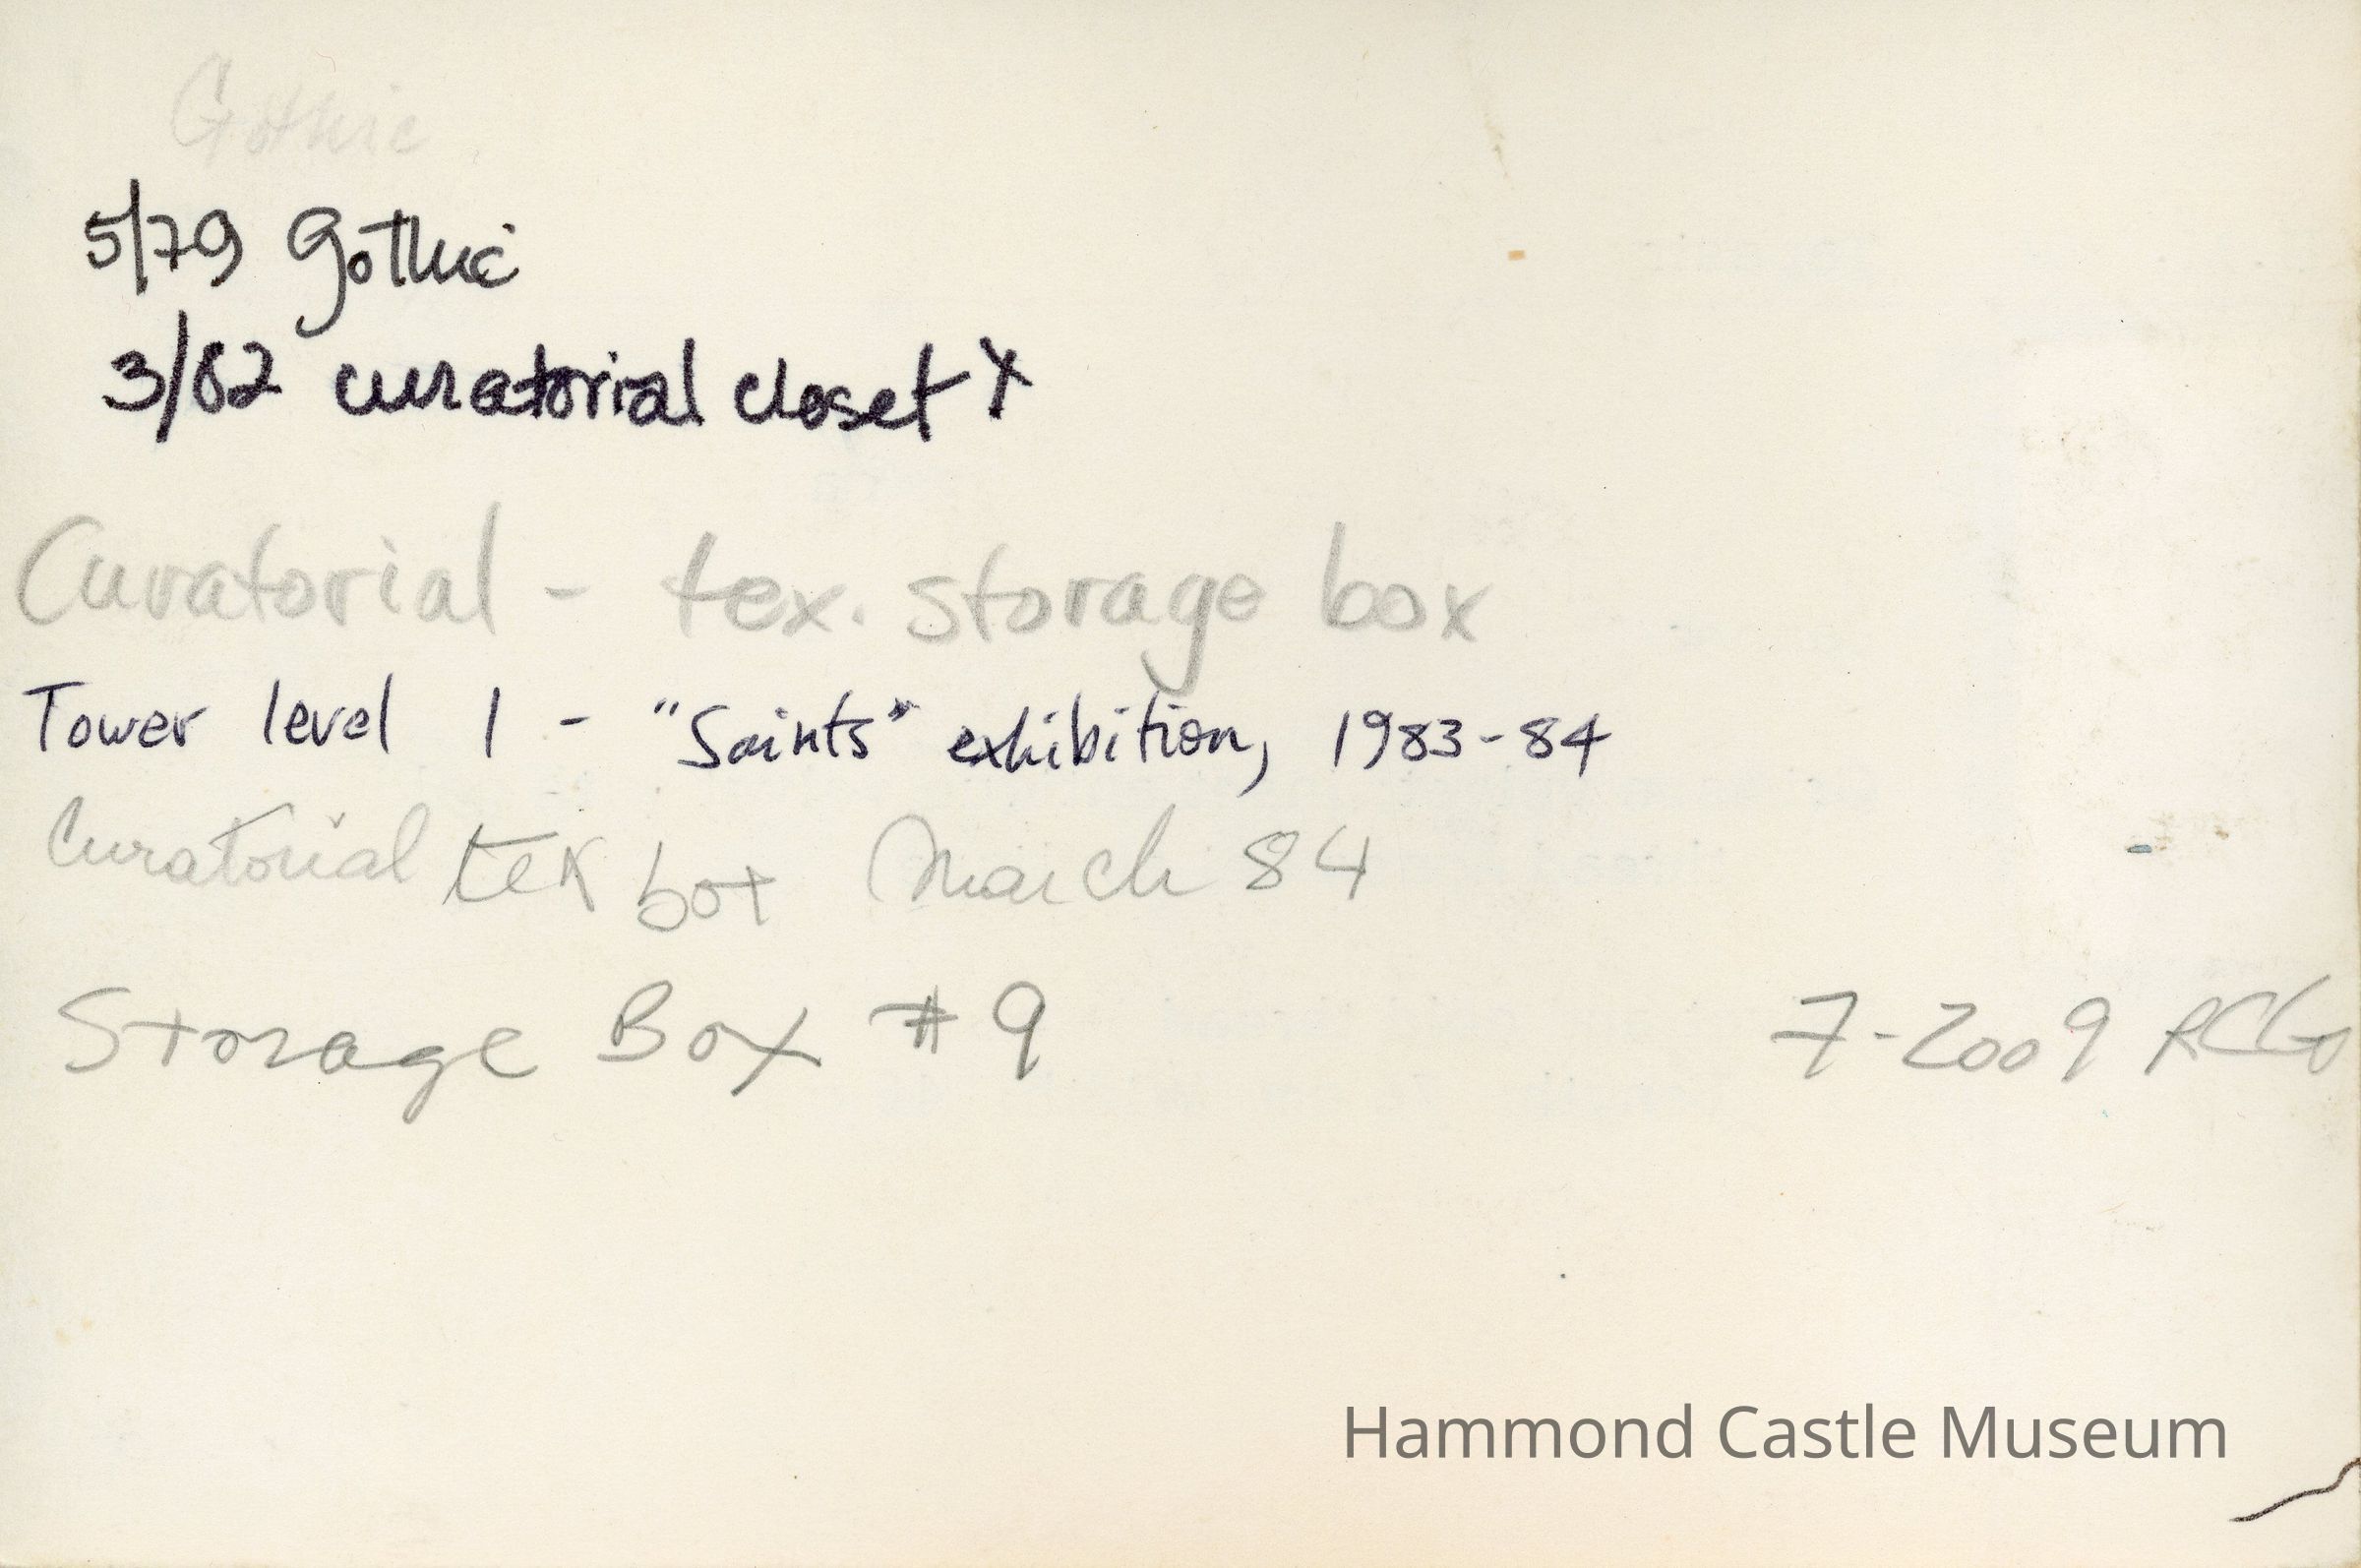 Gothic
5/79 Gothic
3/82 curatorial closet X
Curatorial - tex. storage box
Tower level 1 - "Saints" exhibition, 1983-84
Curatorial tex box March 84
Storage Box #9 7-2009
Hammond Castle Museum